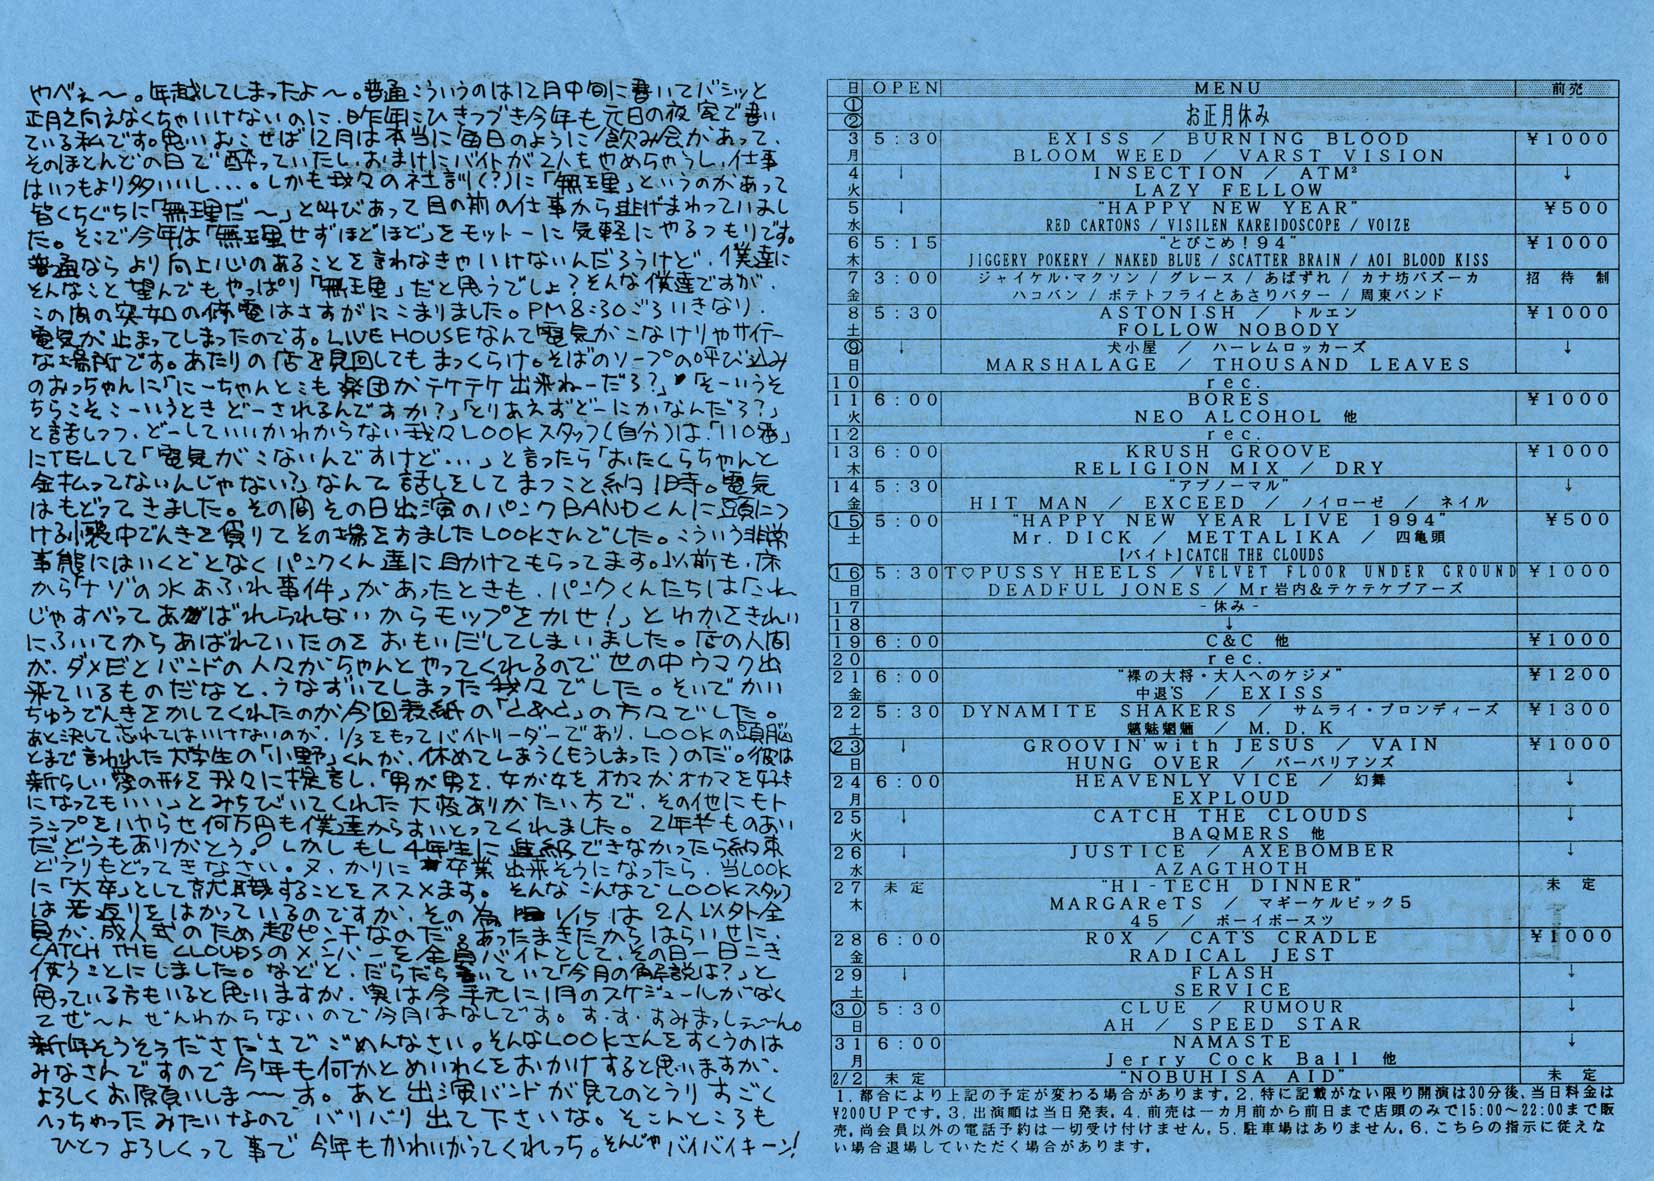 やべぇ〜。年越してしまったよ〜。普通こういうのは12月中旬に書いてバシッと
正月を向えなくちゃいけないのに、昨年にひきつづき今年も元日の夜、家で書い
ている私です。思いおこせば12月は本当に毎日のように飲み会があって、
そのほとんどの日で酔っていたし、おまけにバイトが2人もやめちゃうし、仕事
はいつもより多いいし…。しかも我々の社訓(?)に「無理」というのがあって
皆くちぐちに「無理だ〜」と叫びあって目の前の仕事から逃げまわっていまし
た。そこで今年は「無理せずほどほど」をモットーに気軽にやるつもりです。
普通ならより向上心のあることを言わなきゃいけないんだろうけど、僕達に
そんなこと望んでもやっぱり「無理」だと思うでしょ?そんな僕達ですが、
この前の突如の停電はさすがにこまりました。PM8:30ごろいきなり、
電気が止まってしまったのです。LIVE HOUSEなんて電気がこなけりゃサイテー
な場所です。あたりの店を見回してもまっくらけ。そばのソープの呼び込み
のおっちゃんに「にーちゃんとこも楽団がテケテケ出来ねーだろ?」「そーいうそ
ちらこそこーいうときどーされるんですか?」「とりあえずどーにかなんだろ?」
と話しつつ、どーしていいかわからない我々LOOKスタッフ(自分)は、「110番」
にTELして「電気がこないんですけど…」と言ったら「おたくらちゃんと
金払ってないんじゃない?」なんて話しをしてまつこと約1時。電気
はもどってきました。その間その日出演のパンクBANDくんに頭につ
ける小懐中でんきを借りてその場をすましたLOOKさんでした。こういう非常
事態にはいくどとなくパンクくん達に助けてもらってます。以前も、床
から「ナゾの水あふれ事件」があったときも、パンクくんたちは「これ
じゃすべってあばれられないからモップをかせ!」とゆかをきれい
にふいてからあばれていたのをおもいだしてしまいました。店の人間
が、ダメだとバンドの人々がちゃんとやってくれるので世の中ウマク出
来ているものだなと、うなずいてしまった我々でした。そいでかい
ちゅうでんきをかしてくれたのが今回表紙の「とあと」の方々でした。
あと決して忘れてはいけないのが、1/3をもってバイトリーダーであり、LOOKの頭脳
とまで言われた大学生の「小野」くんが、休めてしまう(もうしまった)のだ。彼は
新らしい愛の形を我々に提言し、「男が男を、女が女をオカマがオカマを好き
になってもいい」とみちびいてくれた大変ありがたい方で、その他にもト
ランプをいやらせ何万円も僕達からすいとってくれました。2年半ものあい
だどうもありがとう。しかしもし4年生に進級できなかったら約束
どうりもどってきなさい。又、かりに卒業出来そうになったら、当LOOK
に「大卒」として就職することをススメます。そんなこんなでLOOKスタッフ
は若返りをはかっているのですが、その為1/15は2人以外全
員が、成人式のため超ピンチなのだ。あったまきたからはらいせに、
CATCH THE CLOUDSのメンバーを全員バイトとして、その日一日こき
使うことにしました。などと、だらだら書いていて「今月の解説は?」と
思っている方もいると思いますが、実は今手元に1月のスケジュールがなく
てぜ〜んぜんわからないので今月はなしです。す・す・すみまっしぇ〜ん。
新年そうそうださださでごめんなさい。そんなLOOKさんをすくうのは
みなさんですので今年も何かとめいわくをおかけすると思いますが、
よろしくお願いしま〜〜す。あと出演バンドが見てのとうりすごく
へっちゃったみたいなのでバリバリ出て下さいな。そこんところも
ひとつよろしくって事で今年もかわいがってくれっち。そんじゃバイバイキーン!
日 OPEN MENU 前売
① ② お正月休み
3 月 5:30 EXISS / BURNING BLOOD ¥1000
BLOOM WEED / VARST VISION
4 火 ↓ INSECTION / ATM² ↓
LAZY FELLOW
5 水 ↓ "HAPPY NEW YEAR" ¥500
RED CARTONS / VISILEN KAREIDOSCOPE / VOIZE
6 木 5:15 "とびこめ!94" ¥1000
JIGGERY POKERY / NAKED BLUE / SCATTER BRAIN / AOI BLOOD KISS
7 金 3:00 ジャイケル・マクソン / グレース / あばずれ / カナ坊バズーカ 招待制
ハコバン / ポテトフライとあさりバター / 周東バンド
8 土 5:30 ASTONISH / トルエン ¥1000
FOLLOW NOBODY
⑨ 日 ↓ 犬小屋 / ハーレムロッカーズ ↓
MARSHALAGE / THOUSAND LEAVES
10 rec.
11 火 6:00 BORES ¥1000
NEO ALCOHOL 他
12 rec.
13 木 6:00 KRUSH GROOVE ¥1000
RELIGION MIX / DRY
14 金 5:30 "アブノーマル" ↓
HIT MAN / EXCEED / ノイローゼ / ネイル
⑮ 土 5:00 "HAPPY NEW YEAR LIVE 1994" ¥500
Mr. DICK / METTALIKA / 四亀頭
【バイト】CATCH THE CLOUDS
⑯ 日 5:30 T♡PUSSY HEELS / VELVET FLOOR UNDER GROUND ¥1000
DEADFUL JONES / Mr岩内&テケテケブアーズ
17 -休み-
18 ↓
19 6:00 C&C 他 ¥1000
20 rec.
21 金 6:00 "裸の大将・大人へのケジメ" ¥1200
中退'S / EXISS
22 土 5:30 DYNAMITE SHAKERS / サムライ・ブロンディーズ ¥1300
魑魅魍魎 / M.D.K
㉓ 日 ↓ GROOVIN' with JESUS / VAIN ¥1000
HUNG OVER / バーバリアンズ
24 月 6:00 HEAVENLY VICE / 幻舞 ↓
EXPLOUD
25 火 ↓ CATCH THE CLOUDS ↓
BAQMERS 他
26 水 ↓ JUSTICE / AXEBOMBER ↓
AZAGTHOTH
27 木 未定 "HI-TECH DINNER" 未定
MARGAReTS / マギーケルビック5
45 / ボーイボースツ
28 金 6:00 ROX / CAT'S CRADLE ¥1000
RADICAL JEST
29 土 ↓ FLASH ↓
SERVICE
㉚ 日 5:30 CLUE / RUMOUR ↓
AH / SPEED STAR
31 月 6:00 NAMASTE ↓
Jerry Cock Ball 他
2/2 未定 "NOBUHISA AID" 未定
1. 都合により上記の予定が変わる場合があります。2. 特に記載がない限り開演は30分後、当日料金は
¥200UPです。3. 出演順は当日発表。4. 前売は一カ月前から前日まで店頭のみで15:00〜22:00まで販
売。尚会員以外の電話予約は一切受け付けません。5. 駐車場はありません。6. こちらの指示に従えな
い場合退場していただく場合があります。